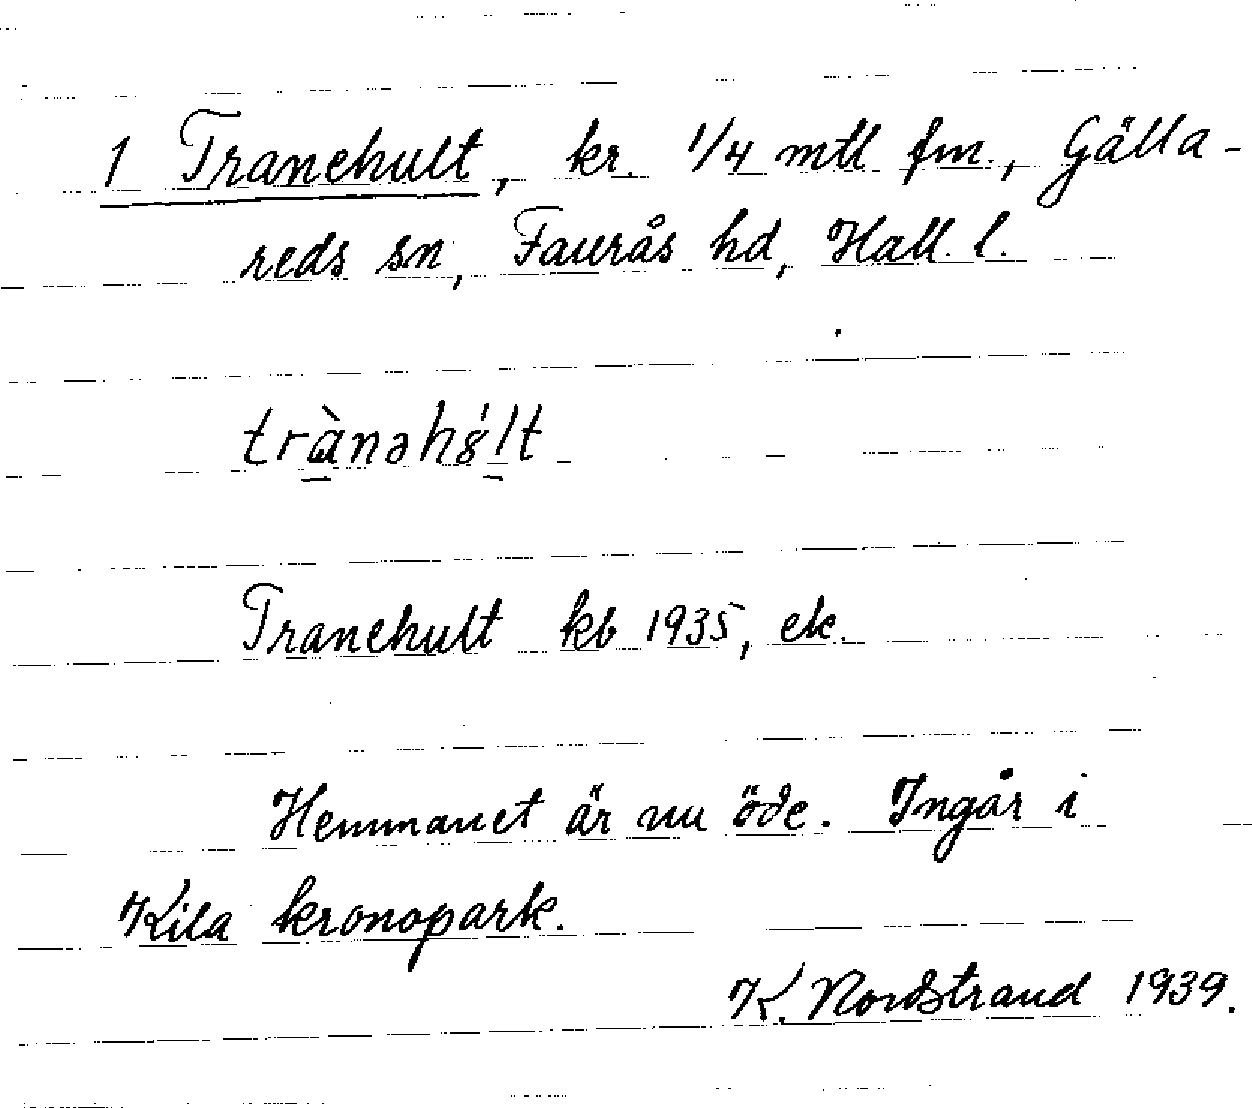 1 Tranehult, kr. 1/4 mtl fm., Gälla-
reds sn, Faurås hd, Hall. l.
trànəhȣ́lt
Tranehult kb 1935, ek.
Hemmanet är nu öde. Ingår i
Kila kronopark.
K. Nordstrand 1939.